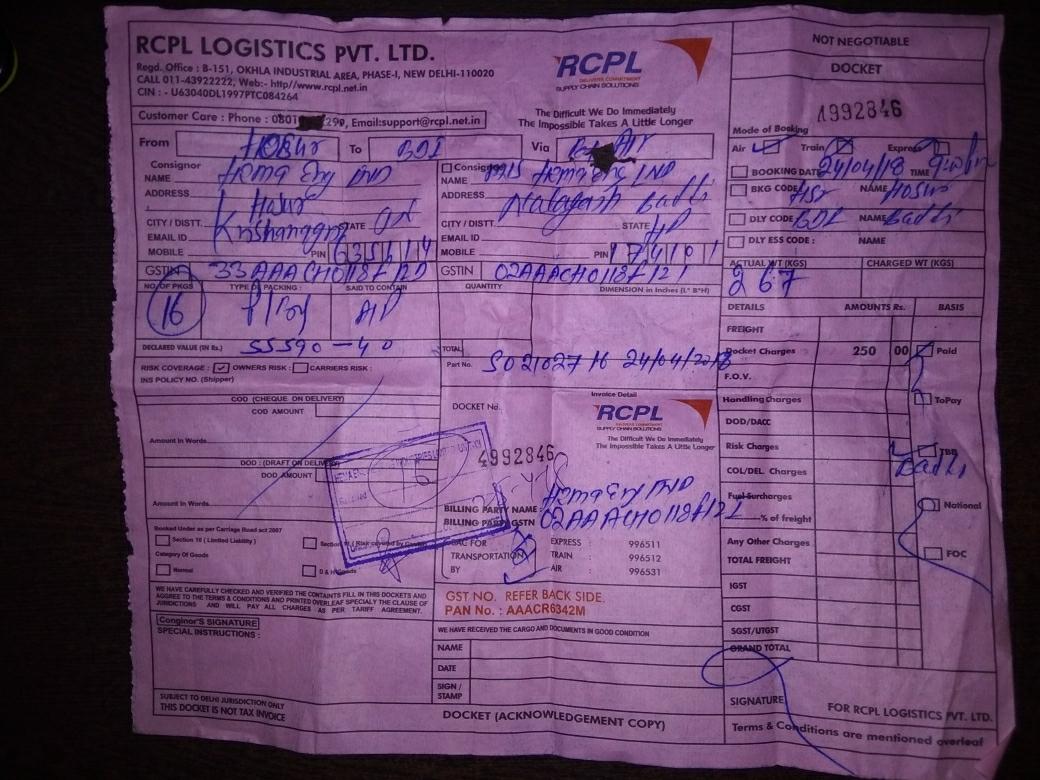 RCPL LOGISTICS PVT. LTD.
Regd. Office : B-151, OKHLA INDUSTRIAL AREA, PHASE-I, NEW DELHI-110020
CALL 011-43922222, Web:- http//www.rcpl.net.in
CIN : - U63040DL1997PTC084264
Customer Care : Phone : 0801 290, Email:support@rcpl.net.in
RCPL
DELIVERS COMMITMENT
SUPPLY CHAIN SOLUTIONS
The Difficult We Do Immediately
The Impossible Takes A Little Longer
NOT NEGOTIABLE
DOCKET
4992846
Mode of Booking
Air Train Express
From Hosur To BDI Via Air
Consignor
NAME Hema Eng IND
ADDRESS Hosur
CITY / DISTT. STATE
EMAIL ID
MOBILE PIN 635114
GSTIN 33AAACH0118F1ZD
Consignee
NAME Hema Eng IND
ADDRESS Baddi
CITY / DISTT. STATE HP
EMAIL ID
MOBILE PIN 174101
GSTIN 02AAACH0118F1Z1
BOOKING DATE 24/04/18 TIME
BKG CODE HSR NAME HOSUR
DLY CODE BDI NAME Baddi
DLY ESS CODE : NAME
ACTUAL WT (KGS) CHARGED WT (KGS)
267
NO. OF PKGS TYPE OF PACKING : SAID TO CONTAIN QUANTITY DIMENSION in Inches (L* B*H)
16 A/P
DECLARED VALUE (IN Rs.) 55590-40
TOTAL
Part No. 24/04/2018
RISK COVERAGE : OWNERS RISK : CARRIERS RISK :
INS POLICY NO. (Shipper)
COD (CHEQUE ON DELIVERY)
COD AMOUNT
Amount in Words
DOD : (DRAFT ON DELIVERY)
DOD AMOUNT
Amount in Words
Booked Under as per Carriage Road act 2007
Section 10 ( Limited Liability )
Category Of Goods
Normal
WE HAVE CAREFULLY CHECKED AND VERIFIED THE CONTAINTS FILL IN THIS DOCKETS AND
AGREE TO THE TERMS & CONDITIONS AND PRINTED OVERLEAF SPECIALY THE CLAUSE OF
JURISDICTIONS AND WILL PAY ALL CHARGES AS PER TARIFF AGREEMENT.
Conginor'S SIGNATURE
SPECIAL INSTRUCTIONS :
SUBJECT TO DELHI JURISDICTION ONLY
THIS DOCKET IS NOT TAX INVOICE
Invoice Detail
DOCKET No.
4992846
RCPL
SUPPLY CHAIN SOLUTIONS
The Difficult We Do Immediately
The Impossible Takes A Little Longer
BILLING PARTY NAME : Hema Eng IND
BILLING PARTY GSTN 02AAACH0118F1Z1
SAC FOR
TRANSPORTATION
BY
EXPRESS : 996511
TRAIN : 996512
AIR : 996531
GST NO. REFER BACK SIDE.
PAN No. : AAACR6342M
WE HAVE RECEIVED THE CARGO AND DOCUMENTS IN GOOD CONDITION
NAME
DATE
SIGN /
STAMP
DOCKET (ACKNOWLEDGEMENT COPY)
DETAILS AMOUNTS Rs. BASIS
FREIGHT
Docket Charges 250 00 Paid
F.O.V.
Handling Charges ToPay
DOD/DACC
Risk Charges TBB
Baddi
COL/DEL. Charges
Fuel Surcharges National
% of freight
Any Other Charges
TOTAL FREIGHT FOC
IGST
CGST
SGST/UTGST
GRAND TOTAL
SIGNATURE
FOR RCPL LOGISTICS PVT. LTD.
Terms & Conditions are mentioned overleaf